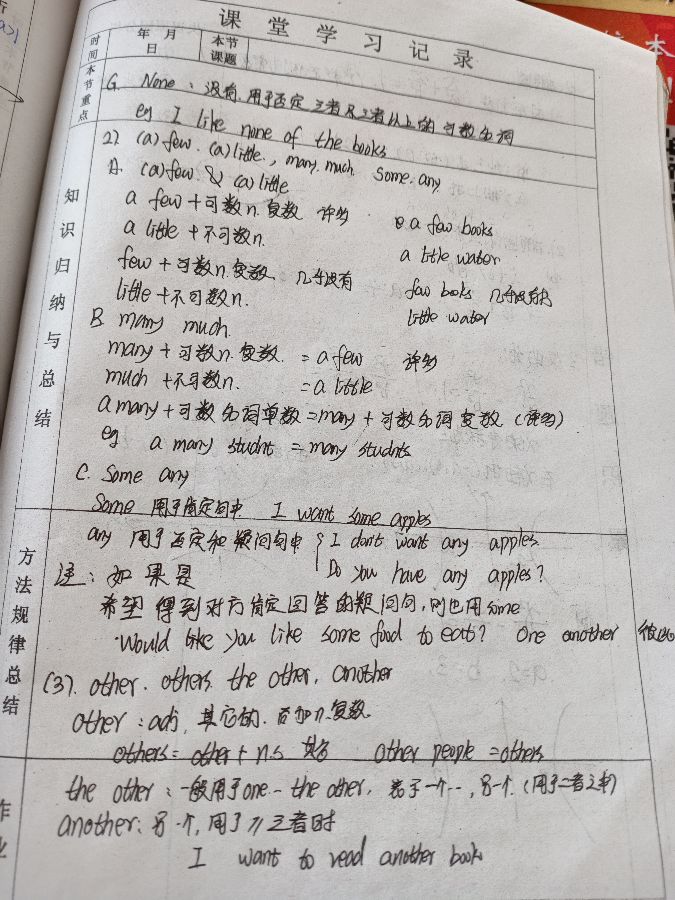 课堂学习记录
时间 年 月 日 本节课题
本节重点
G. None: 没有, 用于否定三者及三者以上的可数名词
eg I like none of the books
2) (a) few. (a) little., many. much. Some. any.
知识归纳与总结
A. (a) few & (a) little
a few + 可数n.复数 许多 a few books
a little + 不可数n. a little water
few + 可数n.复数. 几乎没有 few books 几乎没有的
little + 不可数n. little water
B. many much.
many + 可数n.复数. = a few 许多
much + 不可数n. = a little
a many + 可数名词单数 = many + 可数名词复数 (许多)
eg a many studnt = many studnts
C. Some any
Some 用于肯定句中 I want some apples
方法规律总结
any 用于否定和疑问句中 { I don't want any apples
Do you have any apples?
注: 如果是
希望得到对方肯定回答的疑问句, 则也用some
Would like you like some food to eat? One another 彼此
(3). other. others. the other, another
other: adj, 其它的. 后加n.复数.
others = other + n.s other people = others
作业
the other: 一般用于one... the other. 表示一个..., 另一个. (用于二者之中)
another: 另一个, 用于≥三者时
I want to read another book